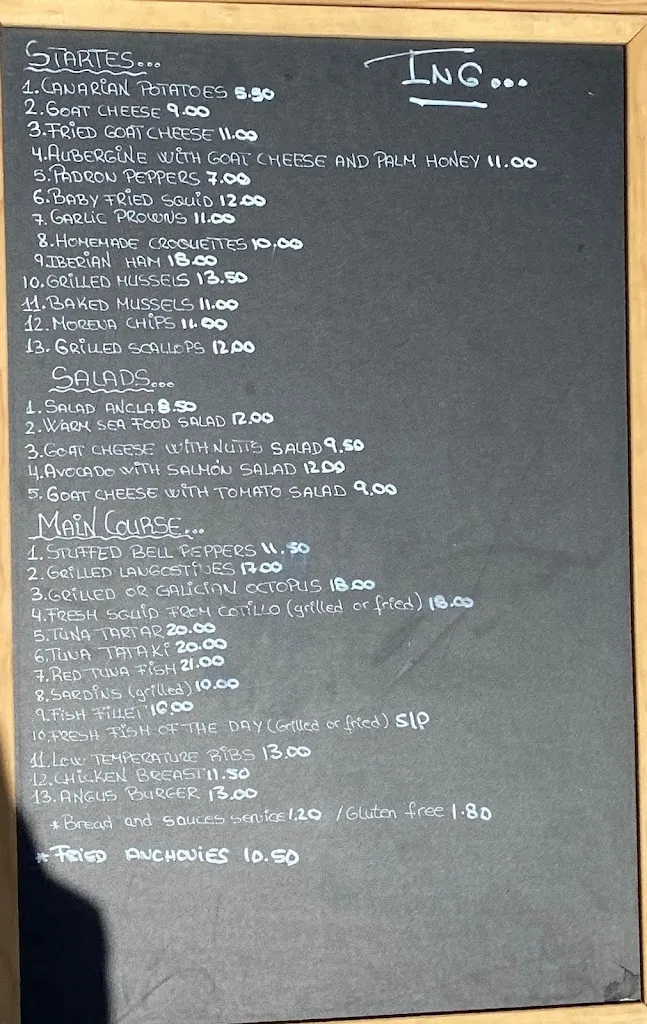 STARTES...
ING...
1.CANARIAN POTATOES 5.50
2.GOAT CHEESE 9.00
3.FRIED GOAT CHEESE 11.00
4.AUBERGINE WITH GOAT CHEESE AND PALM HONEY 11.00
5.PADRON PEPPERS 7.00
6.BABY FRIED SQUID 12.00
7.GARLIC PROWNS 11.00
8.HOMEMADE CROQUETTES 10.00
9.IBERIAN HAM 18.00
10.GRILLED MUSSELS 13.50
11.BAKED MUSSELS 11.00
12.MORENA CHIPS 11.00
13. GRILLED SCALLOPS 12.00
SALADS...
1.SALAD ANCLA 8.50
2.WARM SEA FOOD SALAD 12.00
3.GOAT CHEESE WITH NUTTS SALAD 9.50
4.AVOCADO WITH SALMON SALAD 12.00
5. GOAT CHEESE WITH TOMATO SALAD 9.00
MAIN COURSE...
1.STUFFED BELL PEPPERS 11.50
2.GRILLED LANGOSTINES 17.00
3.GRILLED OR GALICIAN OCTOPUS 18.00
4.FRESH SQUID FROM COTILLO (grilled or fried) 18.00
5.TUNA TARTAR 20.00
6.TUNA TATAKI 20.00
7.RED TUNA FISH 21.00
8.SARDINS (grilled) 10.00
9.FISH FILLET 16.00
10.FRESH FISH OF THE DAY (Grilled or fried) S/P
11.LOW TEMPERATURE RIBS 13.00
12.CHICKEN BREAST 11.50
13. ANGUS BURGER 13.00
*Bread and sauces service 1.20 /Gluten free 1.80
*FRIED ANCHOVIES 10.50